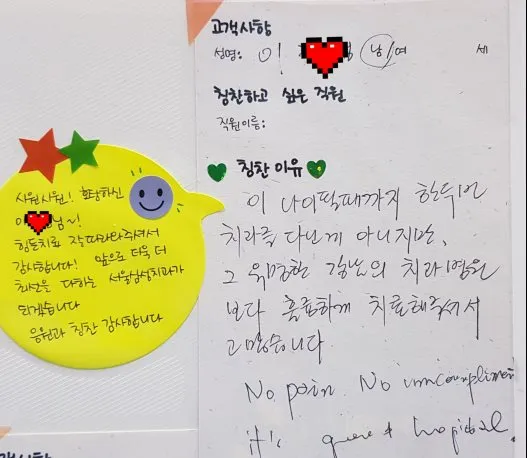 고객사항
성명: 이 남/여 세
칭찬하고 싶은 직원
직원이름:
칭찬 이유
이 나이 될때까지 한두번
치과를 다닌게 아니지만,
그 유명한 강남의 치과병원
보다 훌륭하게 치료해주셔서
고맙습니다
No pain. No
it's hospital.
시원시원! 호탕하신
이 님~!
힘든치료 잘 따라와주셔서
감사합니다! 앞으로 더욱 더
최선을 다하는 서울삼성치과가
되겠습니다
응원과 칭찬 감사합니다
고객사항